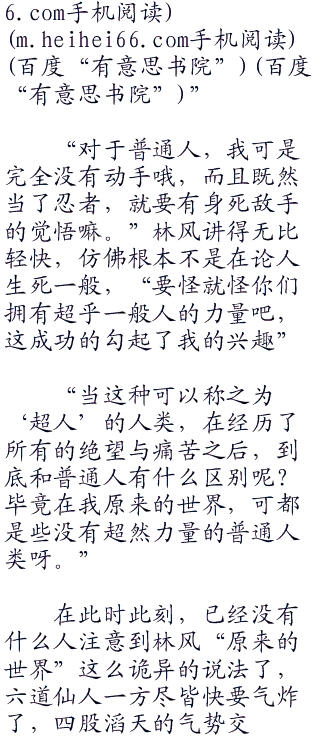 6.com手机阅读)
(m.heihei66.com手机阅读)
(百度“有意思书院”)(百度
“有意思书院”)”
“对于普通人，我可是
完全没有动手哦，而且既然
当了忍者，就要有身死敌手
的觉悟嘛。”林风讲得无比
轻快，仿佛根本不是在论人
生死一般，“要怪就怪你们
拥有超乎一般人的力量吧，
这成功的勾起了我的兴趣”
“当这种可以称之为
‘超人’的人类，在经历了
所有的绝望与痛苦之后，到
底和普通人有什么区别呢？
毕竟在我原来的世界，可都
是些没有超然力量的普通人
类呀。”
在此时此刻，已经没有
什么人注意到林风“原来的
世界”这么诡异的说法了，
六道仙人一方尽皆快要气炸
了，四股滔天的气势交